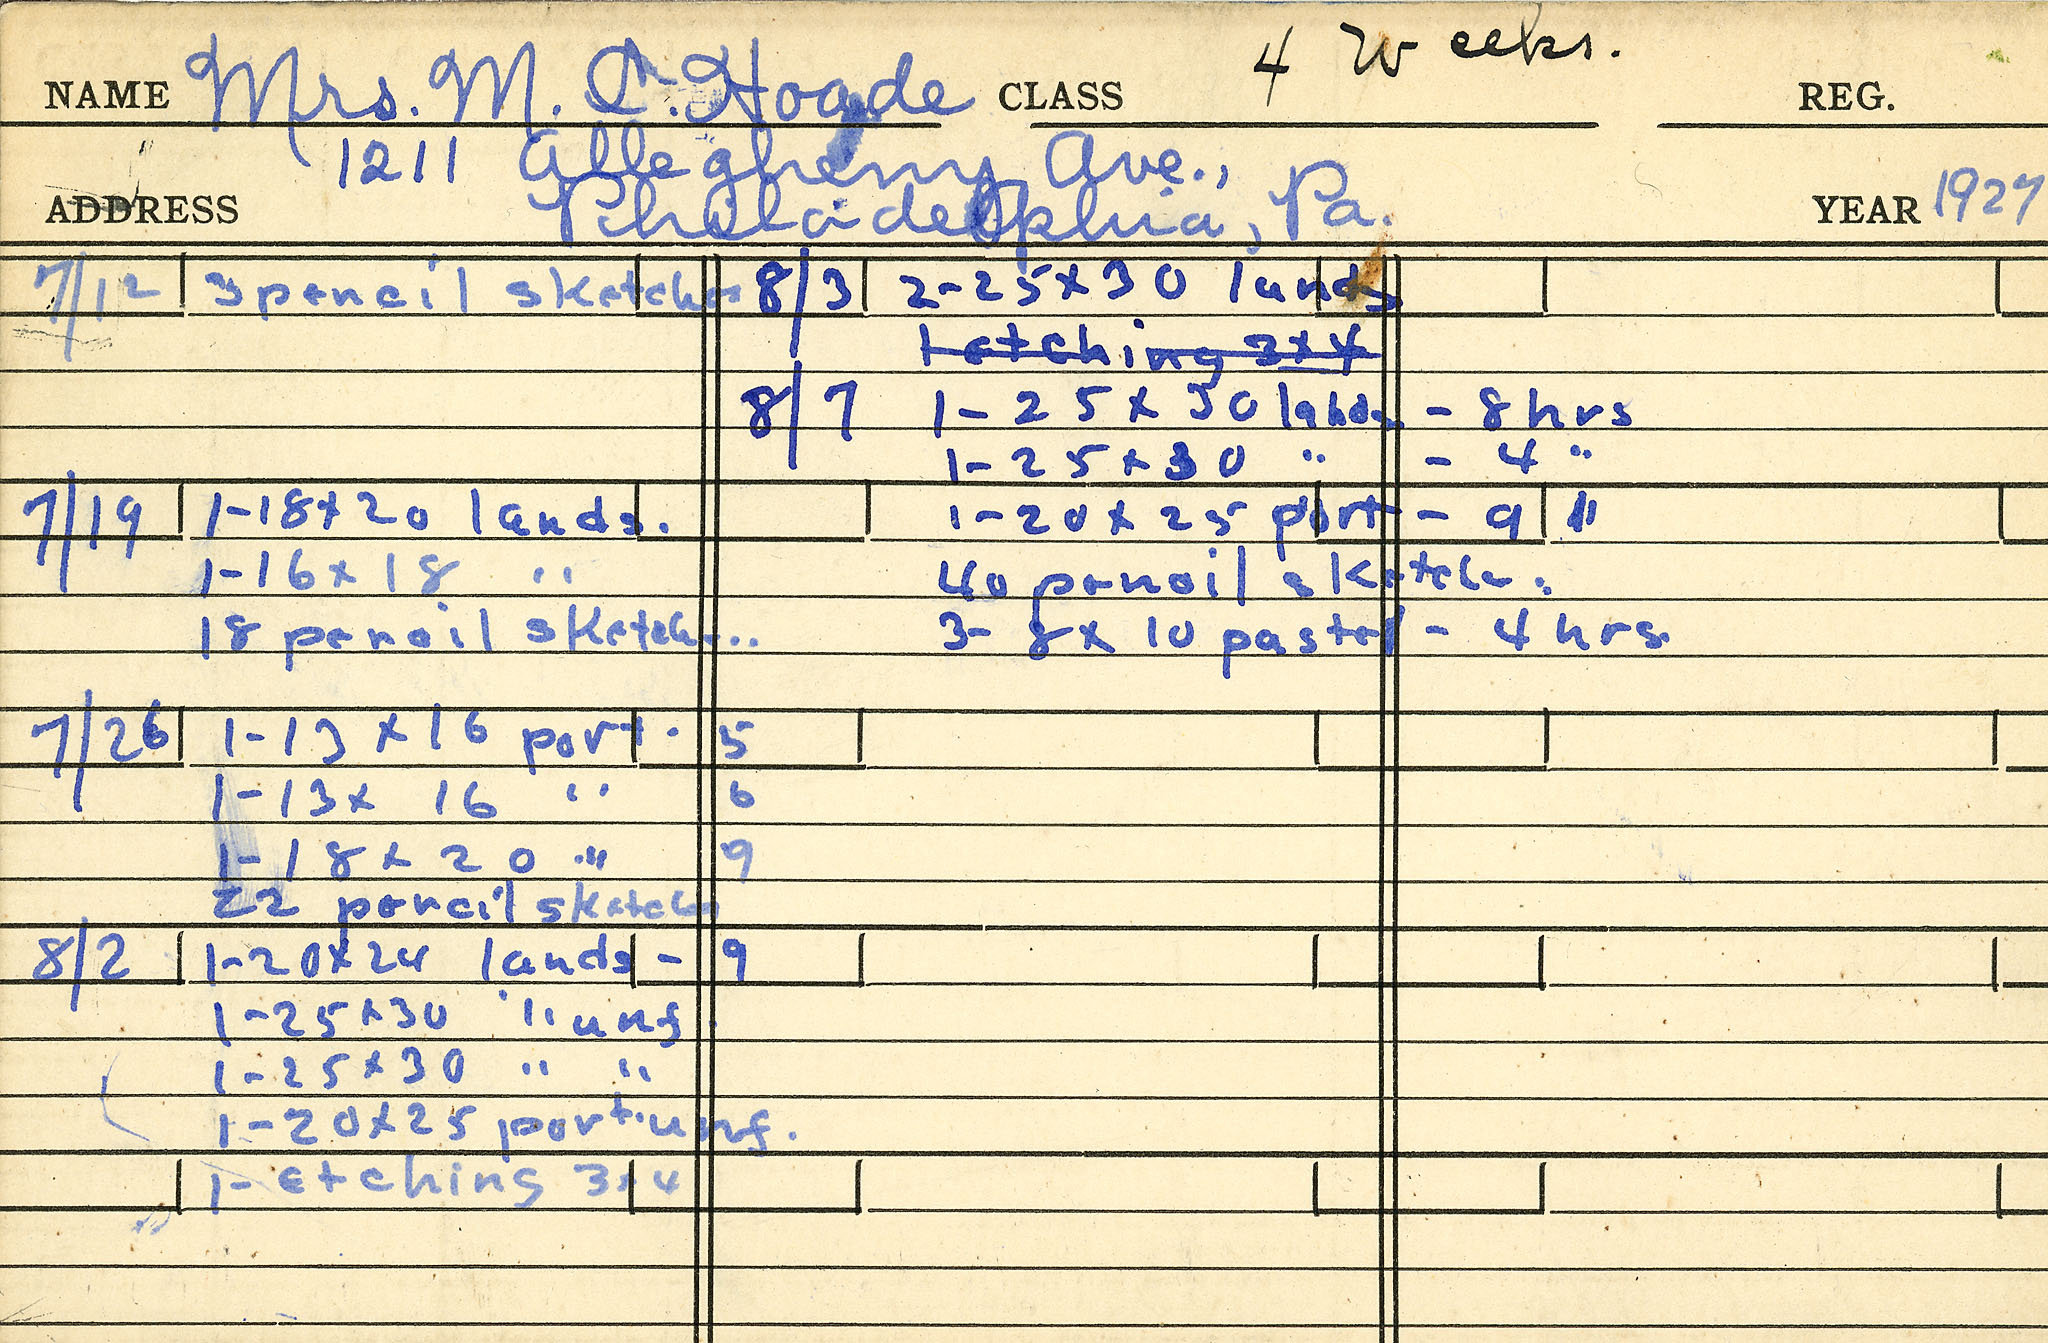 NAME Mrs. M. C. Hoade CLASS 4 Weeks. REG.
1211 Allegheny Ave.,
ADDRESS Philadelphia, Pa. YEAR 1927
7/12 3 pencil sketches
7/19 1-18x20 lands.
1-16x18 "
18 pencil sketch...
7/26 1-13x16 port. 5
1-13x 16 " 6
1-18x20 " 9
22 pencil sketches
8/2 1-20x24 lands - 9
1-25x30 " unf.
1-25x30 " "
1-20x25 port. unf.
1- etching 3x4
8/3 2-25x30 lands
1 etching 3x4
8/7 1-25x30 lands - 8 hrs
1-25x30 " - 4 "
1-20x25 port - 9 "
40 pencil sketch.
3- 8x10 pastel - 4 hrs.